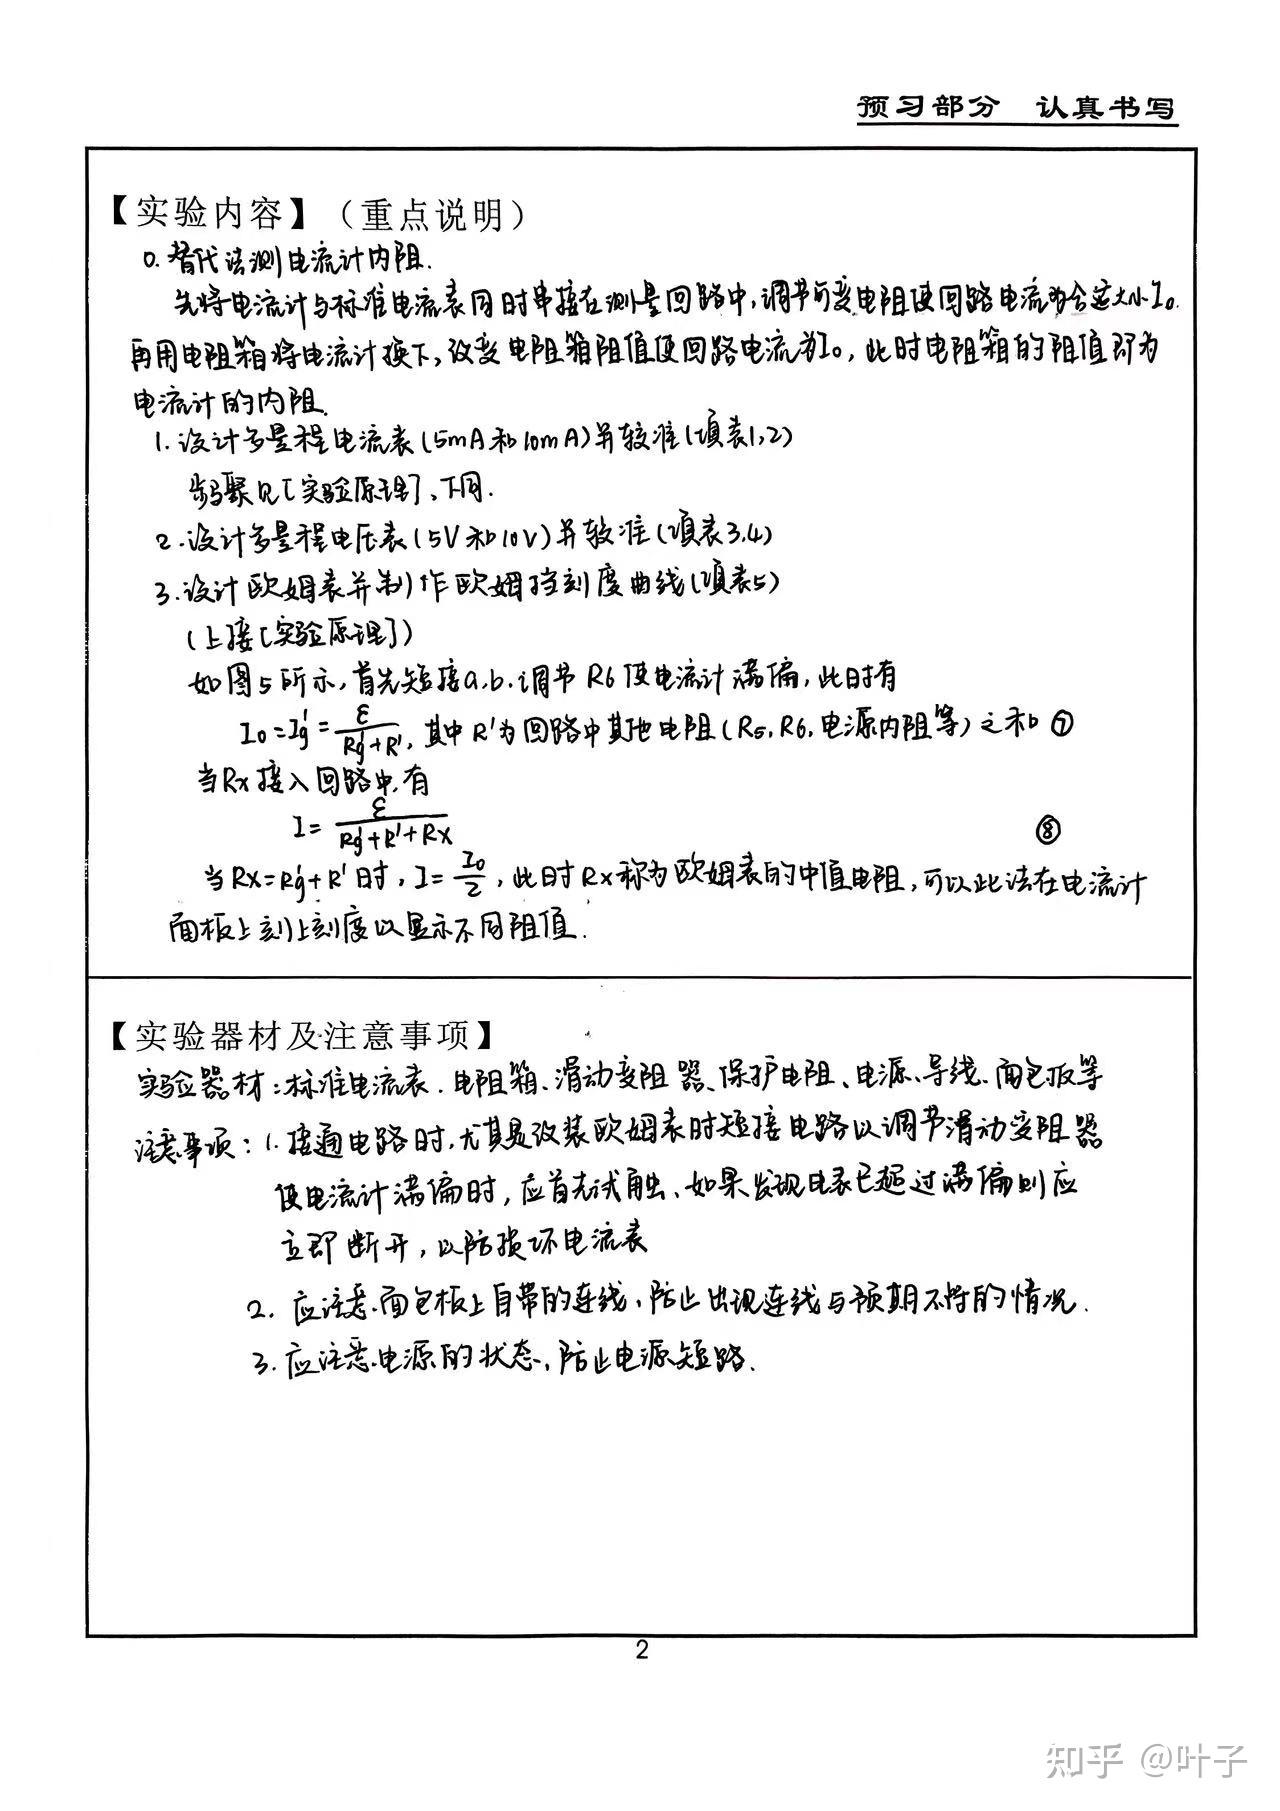 预习部分 认真书写
【实验内容】（重点说明）
0. 替代法测电流计内阻.
先将电流计与标准电流表同时串接在测量回路中，调节可变电阻使回路电流为合适大小I₀.
再用电阻箱将电流计换下，改变电阻箱阻值使回路电流为I₀，此时电阻箱的阻值即为
电流计的内阻.
1. 设计多量程电流表(5mA和10mA)并较准(填表1,2)
步骤见[实验原理]、下同.
2. 设计多量程电压表(5V和10V)并较准(填表3,4)
3. 设计欧姆表并制作欧姆挡刻度曲线(填表5)
(上接[实验原理])
如图5所示，首先短接a,b.调节R6使电流计满偏，此时有
I₀=Ig'=ε/(Rg'+R'), 其中R'为回路中其他电阻(R5,R6,电源内阻等)之和 ⑦
当Rx接入回路中,有
I=ε/(Rg'+R'+Rx) ⑧
当Rx=Rg'+R'时，I=I₀/2，此时Rx称为欧姆表的中值电阻，可以此法在电流计
面板上刻上刻度以显示不同阻值.
【实验器材及注意事项】
实验器材：标准电流表.电阻箱、滑动变阻器、保护电阻、电源、导线、面包板等
注意事项：1. 接通电路时,尤其是改装欧姆表时短接电路以调节滑动变阻器
使电流计满偏时，应首先试触、如果发现电表已超过满偏则应
立即断开，以防损坏电流表
2. 应注意面包板上自带的连线，防止出现连线与预期不符的情况.
3. 应注意电源的状态，防止电源短路.
2
知乎 @叶子